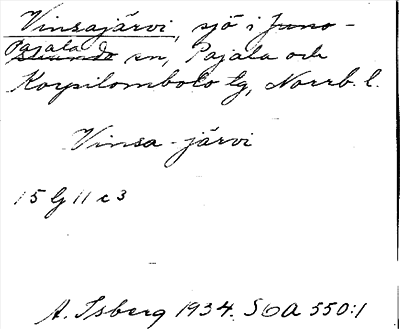 Vinsajärvi, sjö i Juno-
Pajala
strando sn, Pajala och
Korpilombolo tg, Norrb. l.
Vinsa-järvi
15 lj 11 c 3
A. Isberg 1934. SOA 550:1